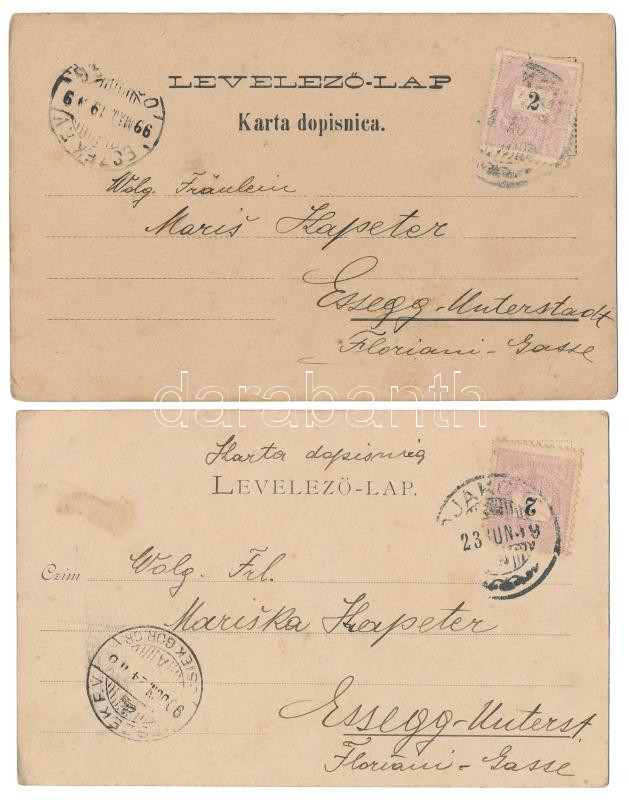 LEVELEZŐ-LAP
Karta dopisnica.
2
Wolg. Fräulein
Mariš Kapeter
Essegg-Unterstadt
Floriani-Gasse
darabanth
Karta dopisnica
LEVELEZŐ-LAP.
2
23 JUN
Czím
Wolg. Frl.
Mariška Kapeter
Essegg-Unterst.
Floriani-Gasse